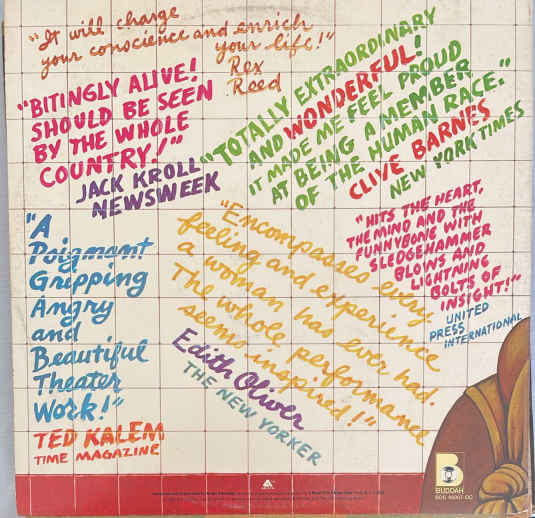 "It will charge
your conscience and enrich
your life!"
Rex
Reed
"BITINGLY ALIVE!
SHOULD BE SEEN
BY THE WHOLE
COUNTRY!"
JACK KROLL
NEWSWEEK
"TOTALLY EXTRAORDINARY
AND WONDERFUL!
IT MADE ME FEEL PROUD
AT BEING A MEMBER
OF THE HUMAN RACE."
CLIVE BARNES
NEW YORK TIMES
"A
Poignant
Gripping
Angry
and
Beautiful
Theater
Work!"
TED KALEM
TIME MAGAZINE
"Encompasses every
feeling and experience
a woman has ever had.
The whole performance
seems inspired!"
Edith Oliver
THE NEW YORKER
"HITS THE HEART,
THE MIND AND THE
FUNNYBONE WITH
SLEDGEHAMMER
BLOWS AND
LIGHTNING
BOLTS OF
INSIGHT!"
UNITED
PRESS INTERNATIONAL
B
BUDDAH